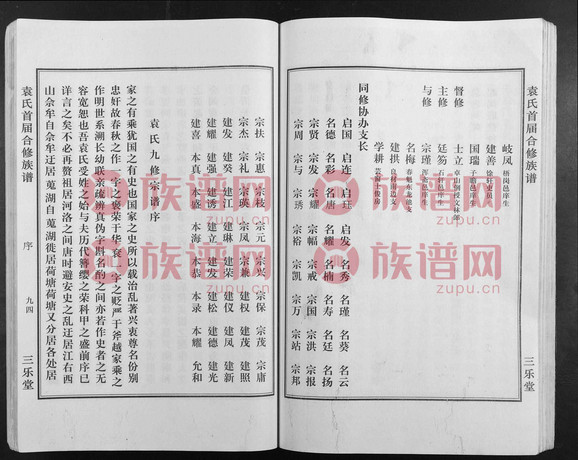 袁氏首届合修族谱
督修
主修
与修
岐凤 梧岗邑庠生
建善
国瑞
士立
廷筠
宗瑾
名梅
建拱
学耕
同修协办支长
启国 启连 启珏 启发 名秀 名葵 名云
名德 名彩 名唐 名耀 名楠 名寿 名廷 名扬
宗贤 宗发 宗幅 宗戒 宗国 宗洪 宗报
宗周 宗与 宗琇 宗裕 宗凯 宗万 宗站 宗邦
宗扶 宗惠 宗枝 宗元 宗兴 宗保 宗茂 宗庸
宗杰 宗礼 宗瑛 宗凤 宗兼 建权 建茂 建照
建发 建癸 建江 建琳 建荣 建仪 建凤 建新
建耀 建强 建诱 建立 建发 建松 建德 建光
建喜 本真 本盛 本海 本恭 本录 本耀 允和
袁氏九修宗谱序
家之有乘犹国之有史也国家之史所以载治乱著兴衰尊名份别
忠奸故春秋之作一字之褒荣于华衮一字之贬严于斧越家乘之
作明世系溯长幼联亲疏辨真伪字斟名酌之间亦若作史者之无
容宽恕也吾袁氏受姓之始与夫历代簪缨之荣科甲之盛前序已
详言之矣不必再赘祖居河洛之间唐时避安史之乱迁居江右西
山佘牟自佘牟迁居蒐湖自蒐湖徙居荷塘荷塘又分居各处居
袁氏首届合修族谱
序
九四
三乐堂
三乐堂
族谱网
zupu.cn